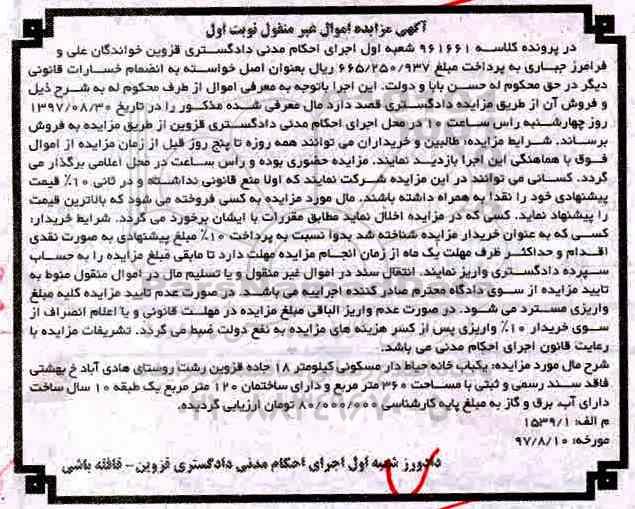 آگهی مزایده اموال غیر منقول نوبت اول
در پرونده کلاسه ۹۶۱۶۶۱ شعبه اول اجرای احکام مدنی دادگستری قزوین خواندگان علی و
فرامرز جباری به پرداخت مبلغ ۶۶۵/۲۵۰/۹۳۷ ریال بعنوان اصل خواسته به انضمام خسارات قانونی
دیگر در حق محکوم له حسن بابا و دولت. این اجرا باتوجه به معرفی اموال از طرف محکوم له به شرح ذیل
و فروش آن از طریق مزایده دادگستری قصد دارد مال معرفی شده مذکور را در تاریخ ۱۳۹۷/۰۸/۳۰
روز چهارشنبه راس ساعت ۱۰ در محل اجرای احکام مدنی دادگستری قزوین از طریق مزایده به فروش
برساند. شرایط مزایده: طالبین و خریداران می توانند همه روزه تا پنج روز قبل از زمان مزایده از اموال
فوق با هماهنگی این اجرا بازدید نمایند. مزایده حضوری بوده و رأس ساعت در محل اعلامی برگذار می
گردد. کسانی می توانند در این مزایده شرکت نمایند که اولا منع قانونی نداشته و در ثانی ۱۰٪ قیمت
پیشنهادی خود را نقداً به همراه داشته باشند. مال مورد مزایده به کسی فروخته می شود که بالاترین قیمت
را پیشنهاد نماید. کسی که در مزایده اخلال نماید مطابق مقررات با ایشان برخورد می گردد. شرایط خریدار:
کسی که به عنوان خریدار مزایده شناخته شد بدوا نسبت به پرداخت ۱۰٪ مبلغ پیشنهادی به صورت نقدی
اقدام و حداکثر ظرف مهلت یک ماه از زمان انجام مزایده مهلت دارد تا مابقی مبلغ مزایده را به حساب
سپرده دادگستری واریز نمایند. انتقال سند در اموال غیر منقول و یا تسلیم مال در اموال منقول منوط به
تایید مزایده از سوی دادگاه محترم صادر کننده اجراییه می باشد. در صورت عدم تایید مزایده کلیه مبلغ
واریزی مسترد می شود. در صورت عدم واریز الباقی مبلغ مزایده در مهلت قانونی و یا اعلام انصراف از
سوی خریدار ۱۰٪ واریزی پس از کسر هزینه های مزایده به نفع دولت ضبط می گردد. تشریفات مزایده با
رعایت قانون اجرای احکام مدنی می باشد.
شرح مال مورد مزایده: یکباب خانه حیاط دار مسکونی کیلومتر ۱۸ جاده قزوین رشت روستای هادی آباد خ بهشتی
فاقد سند رسمی و ثبتی با مساحت ۳۶۰ متر مربع و دارای ساختمان ۱۲۰ متر مربع یک طبقه ۱۰ سال ساخت
دارای آب، برق و گاز به مبلغ پایه کارشناسی ۸۰/۰۰۰/۰۰۰ تومان ارزیابی گردیده.
م الف: ۱۵۳۹/۱
مورخه: ۹۷/۸/۱۰
دادورز شعبه اول اجرای احکام مدنی دادگستری قزوین - قافله باشی